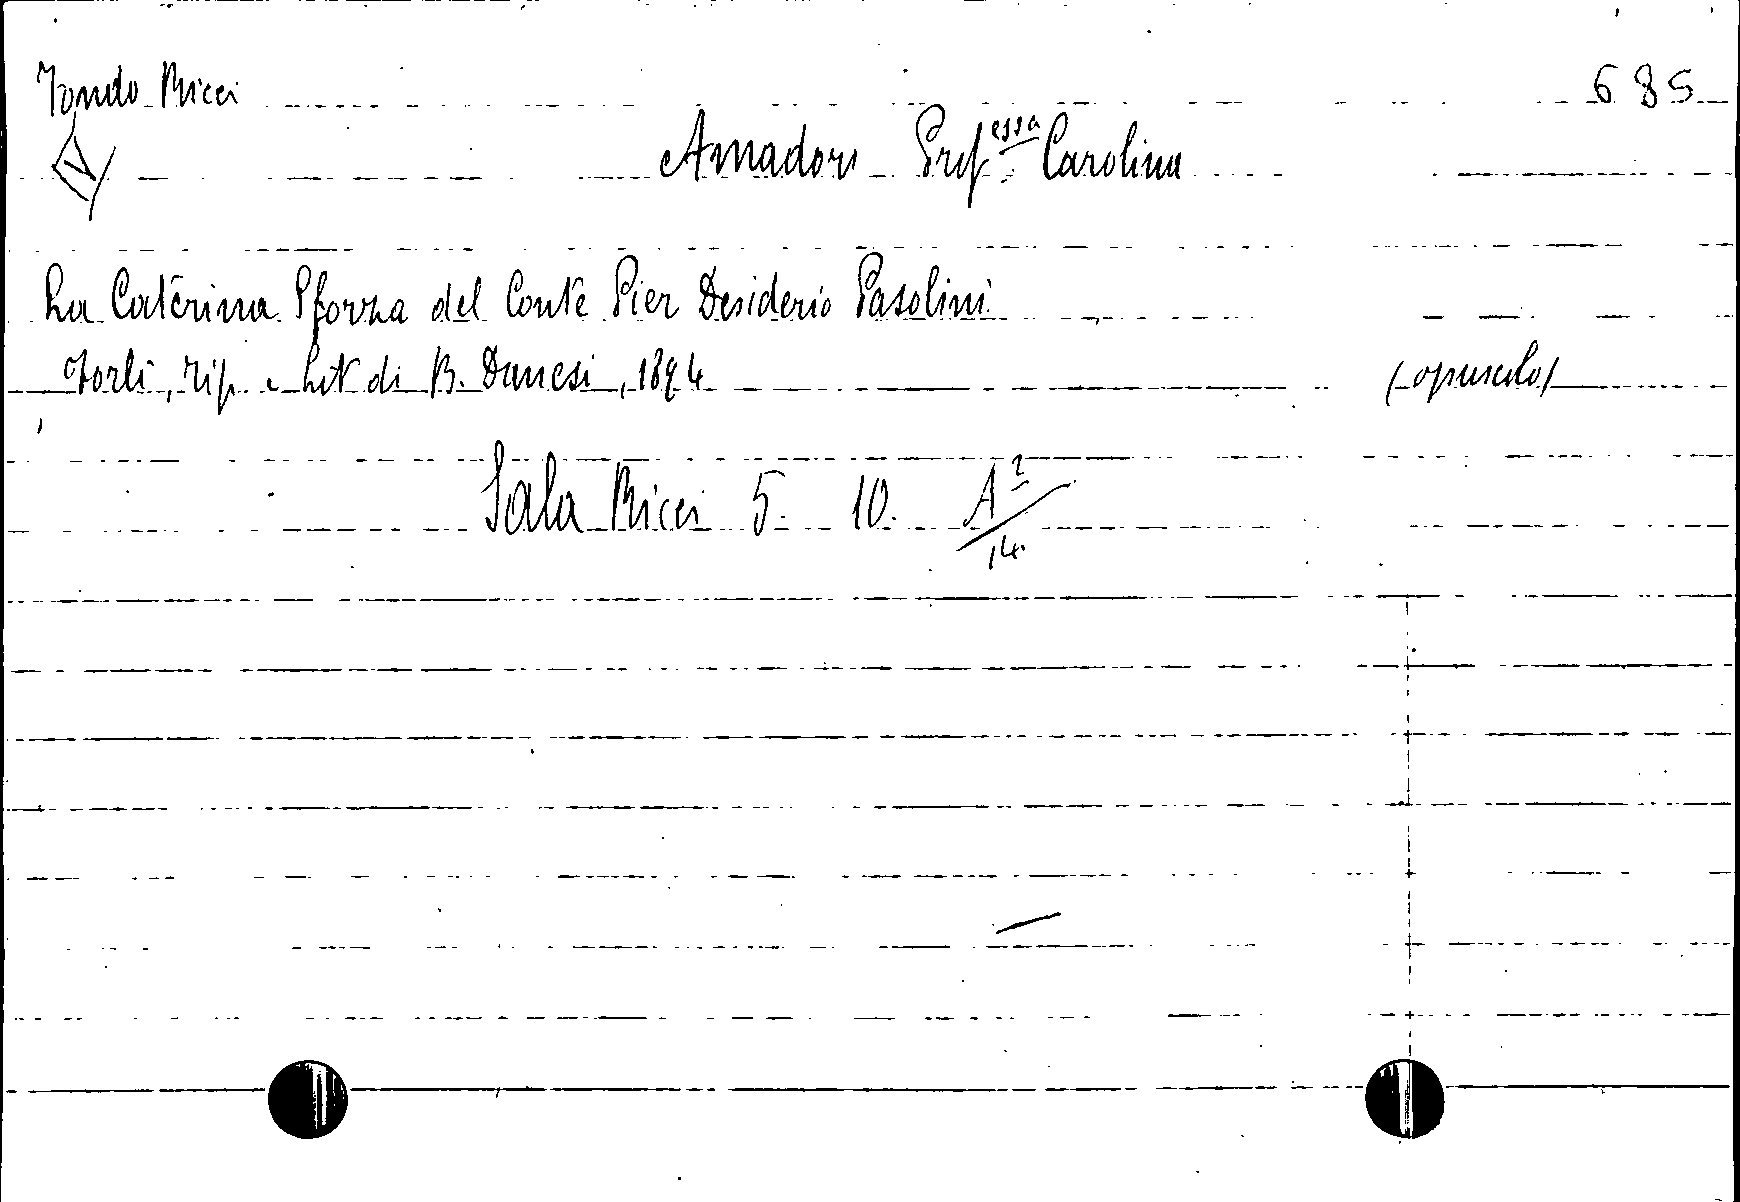 Fondo Ricci 685
IV
Amadori Prof.essa Carolina
La Caterina Sforza del Conte Pier Desiderio Pasolini
Forlì, Tip. e Lit. di B. Danesi, 1894 (opuscolo)
Sala Ricci 5. 10. A²/14.